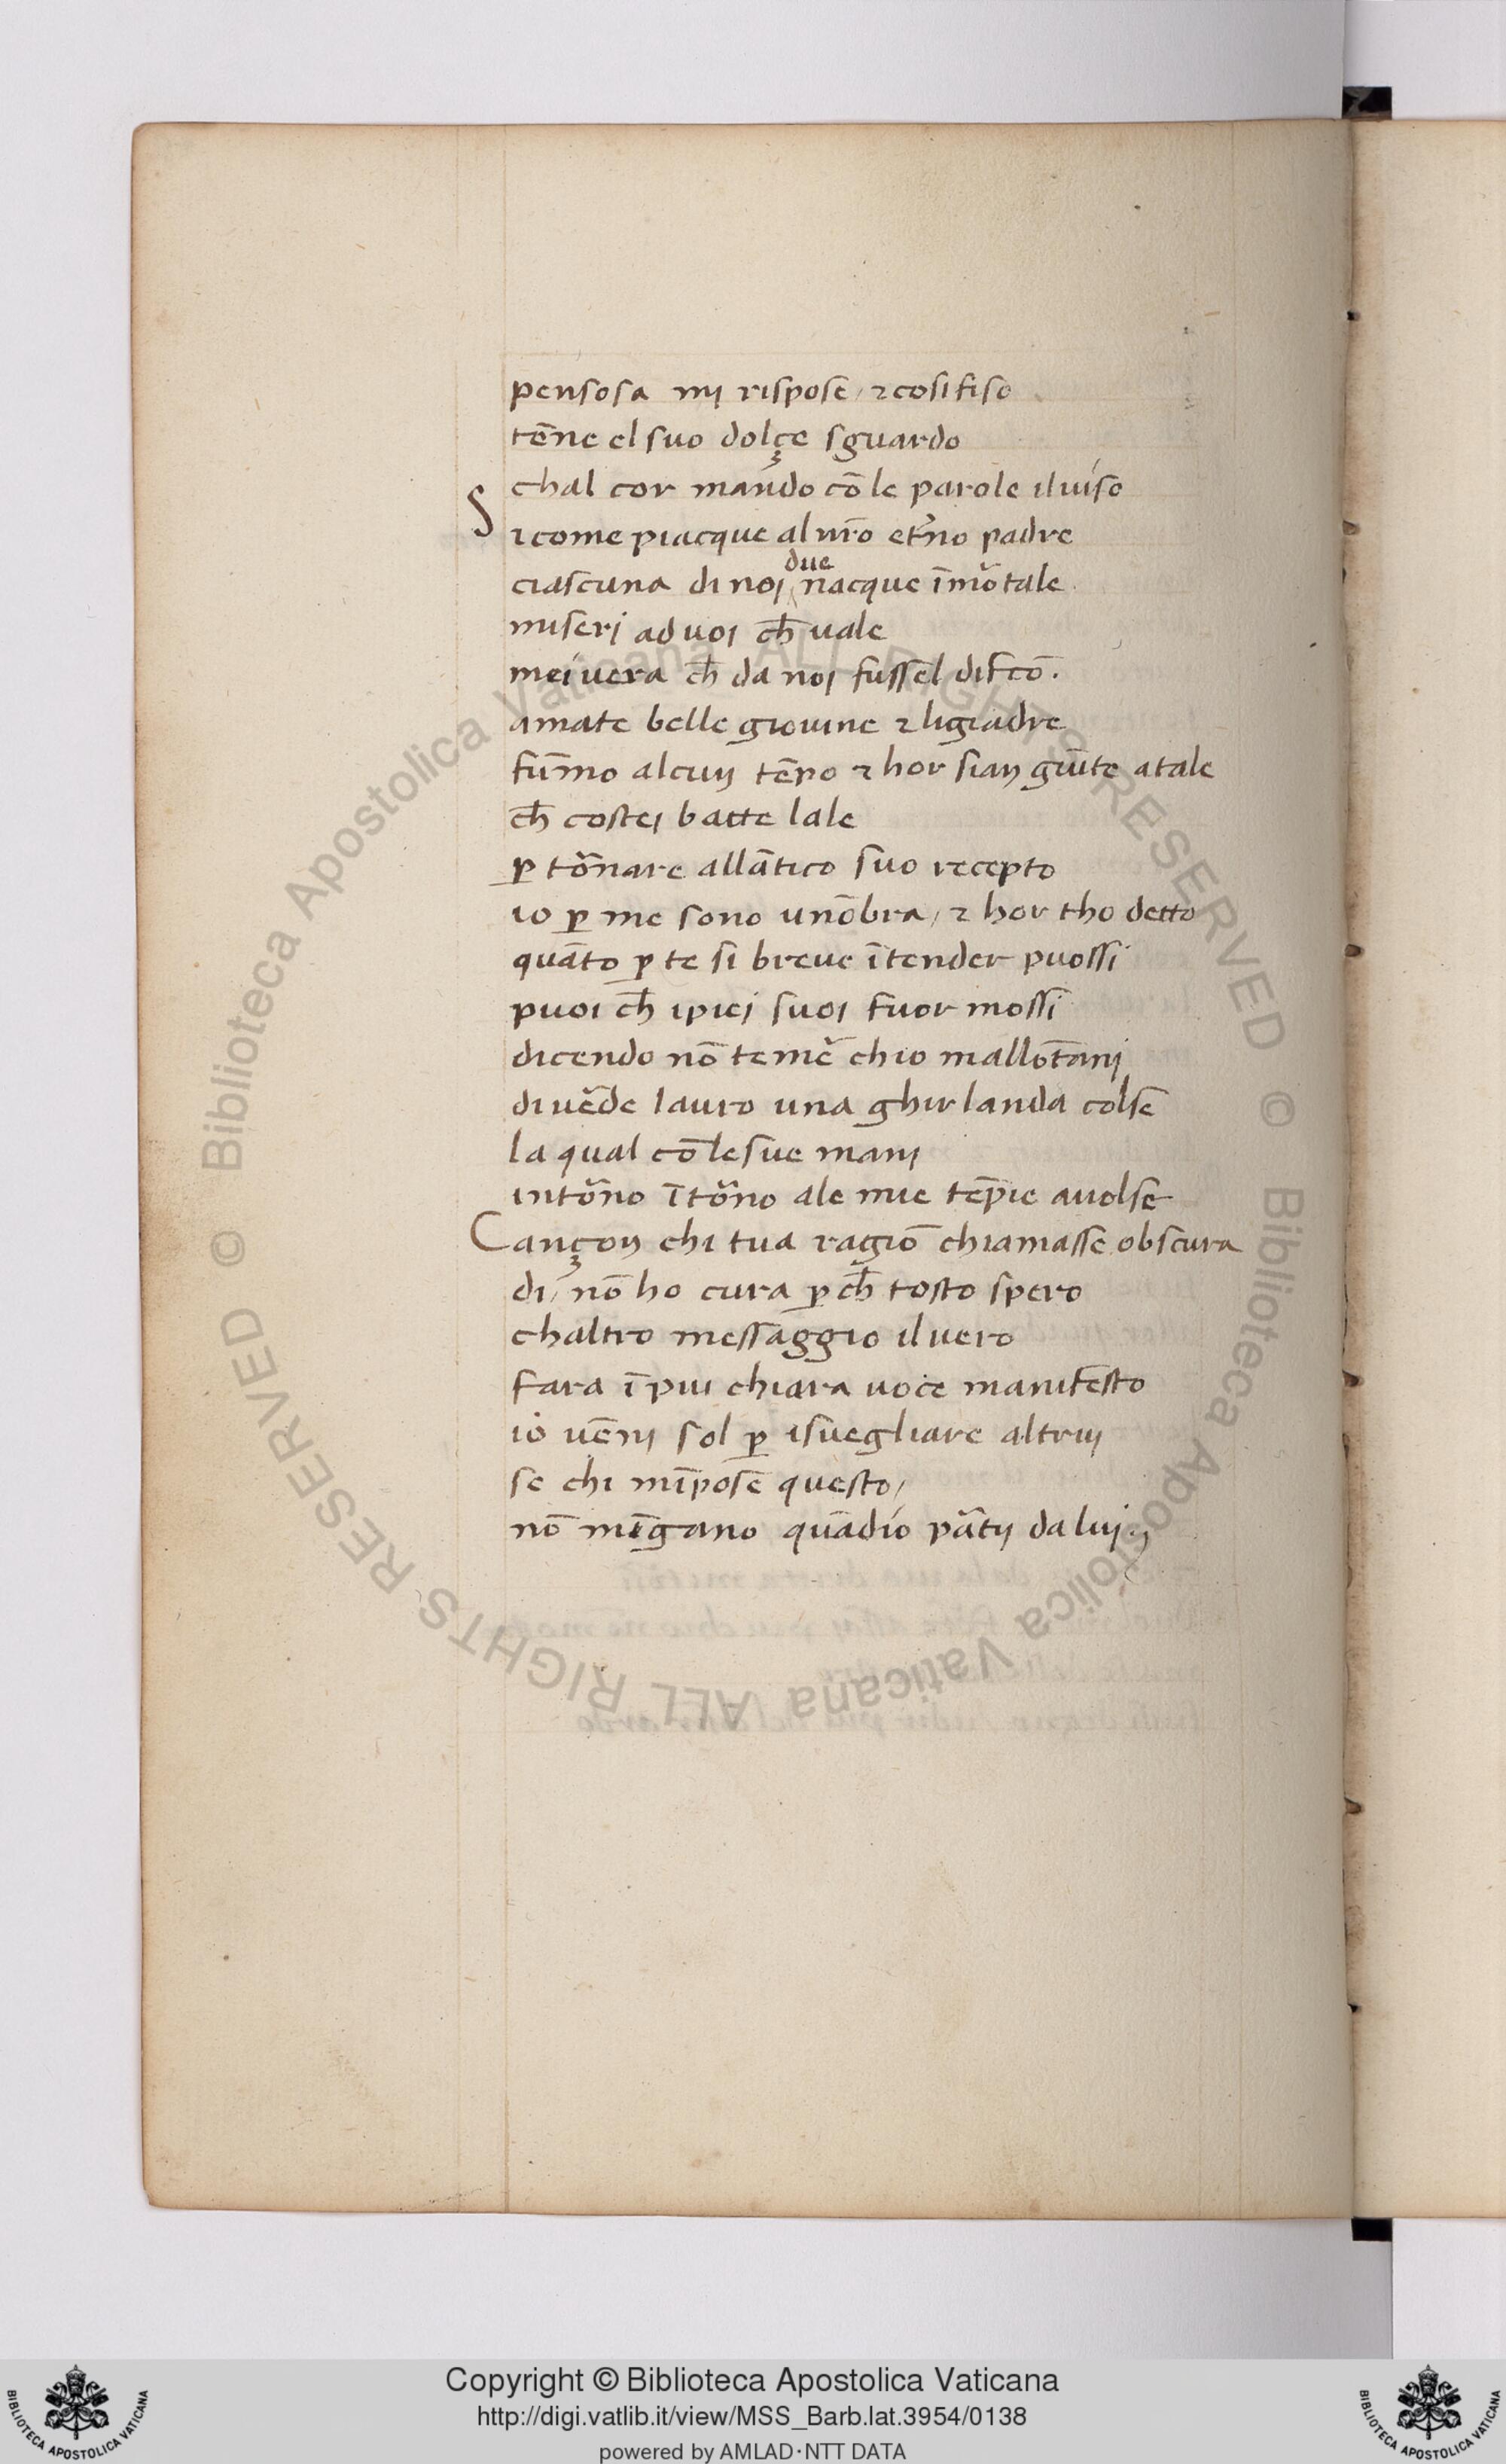 pensosa mi rispose / ⁊ cosi fiso
tēne el suo dolçe sguardo
chal cor mando cō le parole il uiso
S ⁊ come piacque al nr̄o et̄no padre
due
ciascuna di noi nacque īmor̄tale
miseri ad uoi ch̄ uale
mei uera ch̄ da noi fussel difc̄o.
amate belle giouine ⁊ ligiadre
fūmo alcun tēpo ⁊ hor sian giūte a tale
ch̄ costei batte lale
ꝑ tor̄nare allātico suo recepto
io ꝑ me sono unōbra / ⁊ hor tho detto
quāto ꝑ te si breue ītender puossi
puoi ch̄ i piei suoi fuor mossi
dicendo nō temē chio mallōtani
di uēde lauro una ghirlanda colse
la qual cō le sue mani
intōno ītōno ale mie tēpie auolse
Cançon chi tua ragiō chiamasse obscura
di / nō ho cura ꝑch̄ tosto spero
chaltro messaggio il uero
fara ī piu chiara uoce manifesto
io uēni sol ꝑ isuegliare altrui
se chi mīpose questo /
nō mīgano quādio pātii da lui.
© Biblioteca Apostolica Vaticana ALL RIGHTS RESERVED © Biblioteca Apostolica Vaticana ALL RIGHTS RESERVED
Copyright © Biblioteca Apostolica Vaticana
http://digi.vatlib.it/view/MSS_Barb.lat.3954/0138
powered by AMLAD·NTT DATA
BIBLIOTECA APOSTOLICA VATICANA
BIBLIOTECA APOSTOLICA VATICANA